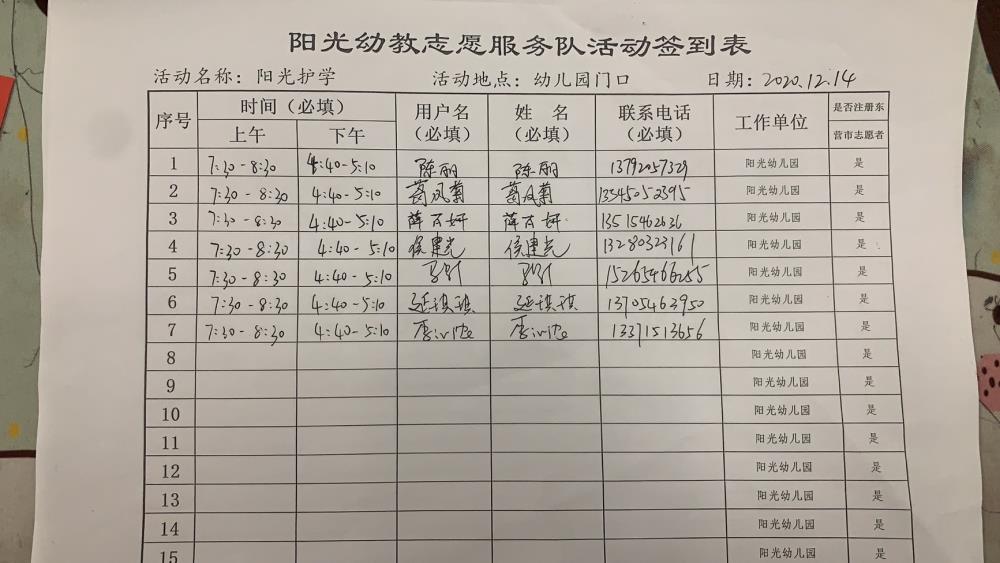 阳光幼教志愿服务队活动签到表
活动名称：阳光护学 活动地点：幼儿园门口 日期：2020.12.14
序号 时间（必填） 用户名（必填） 姓名（必填） 联系电话（必填） 工作单位 是否注册东营市志愿者
上午 下午
1 7:30-8:30 4:40-5:10 陈丽 陈丽 13792057329 阳光幼儿园 是
2 7:30-8:30 4:40-5:10 葛凤菊 葛凤菊 13545052395 阳光幼儿园 是
3 7:30-8:30 4:40-5:10 薛 妍 薛 妍 阳光幼儿园 是
4 7:30-8:30 4:40-5:10 侯建光 侯建光 13280323161 阳光幼儿园 是
5 7:30-8:30 4:40-5:10 15265466255 阳光幼儿园 是
6 7:30-8:30 4:40-5:10 延琪琪 延琪琪 13705463950 阳光幼儿园 是
7 7:30-8:30 4:40-5:10 李 李 13371513656 阳光幼儿园 是
8 阳光幼儿园 是
9 阳光幼儿园 是
10 阳光幼儿园 是
11 阳光幼儿园 是
12 阳光幼儿园 是
13 阳光幼儿园 是
14 阳光幼儿园 是
15 阳光幼儿园 是